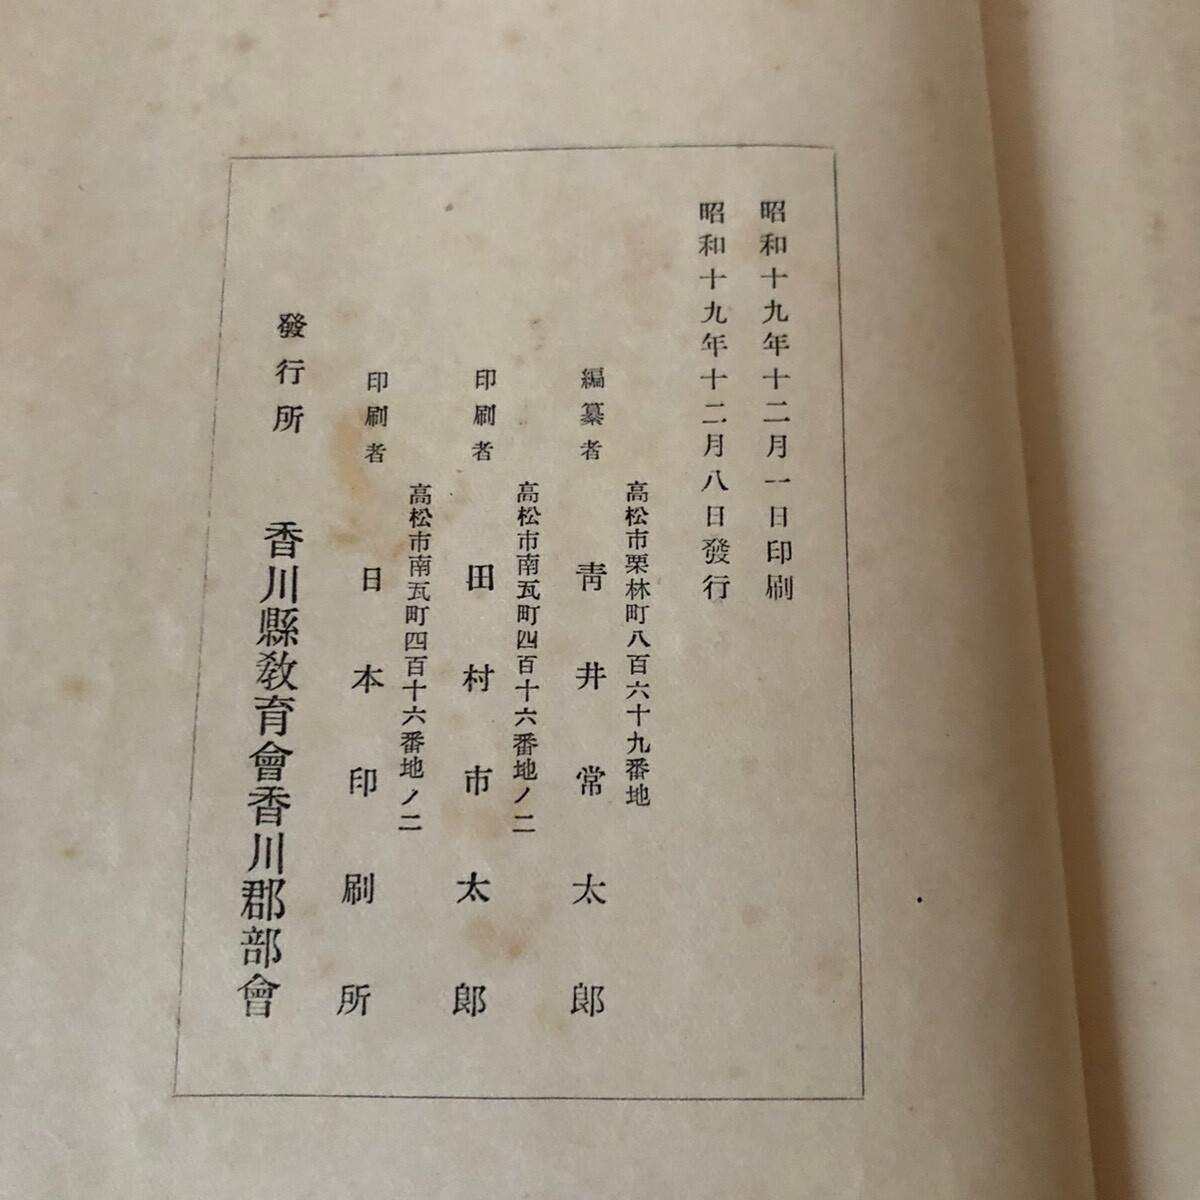 昭和十九年十二月一日印刷
昭和十九年十二月八日發行
高松市栗林町八百六十九番地
編纂者 靑井常太郎
高松市南瓦町四百十六番地ノ二
印刷者 田村市太郎
高松市南瓦町四百十六番地ノ二
印刷者 日本印刷所
發行所 香川縣敎育會香川郡部會